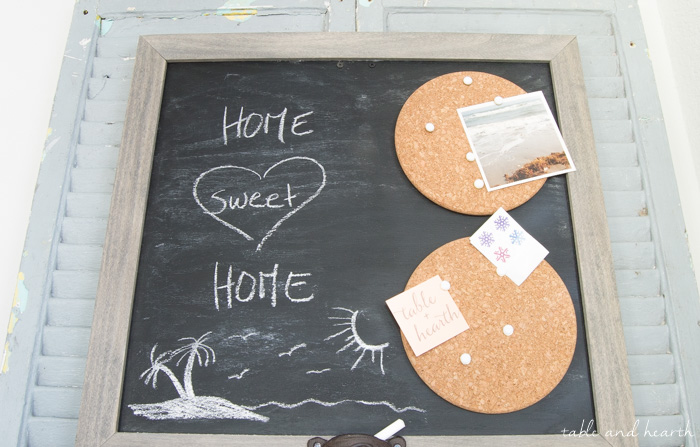 HOME
sweet
HOME
table
+
hearth
table and hearth